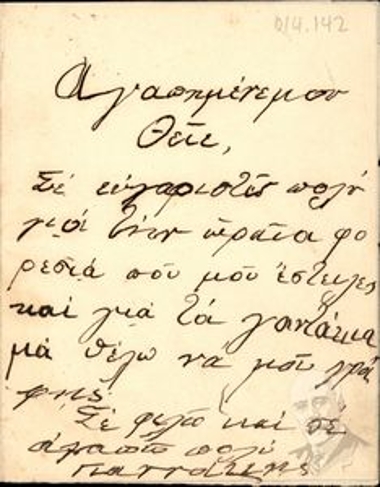 Ω/4.142
Αγαπημένεμου
Θείε,
Σέ ευχαριστώ πολύ
γιά τήν ωραία φο
ρεσιά πού μού έστειλες
καί γιά τά γαντάκια
μά θέλω νά μού γρά
φης.
Σέ φιλώ καί σέ
αγαπώ πολύ